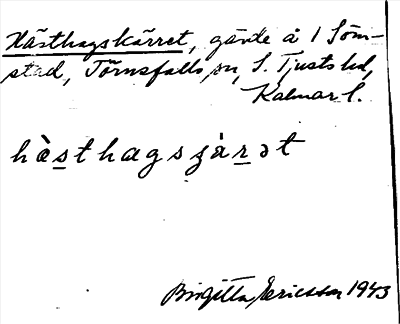 Hästhagskärret, gärde å 1 Töm-
stad, Törnsfalls sn, S. Tjusts hd,
Kalmar l.
hàs̲thagsʂàr̲ət
Birgitta Ericsson 1943